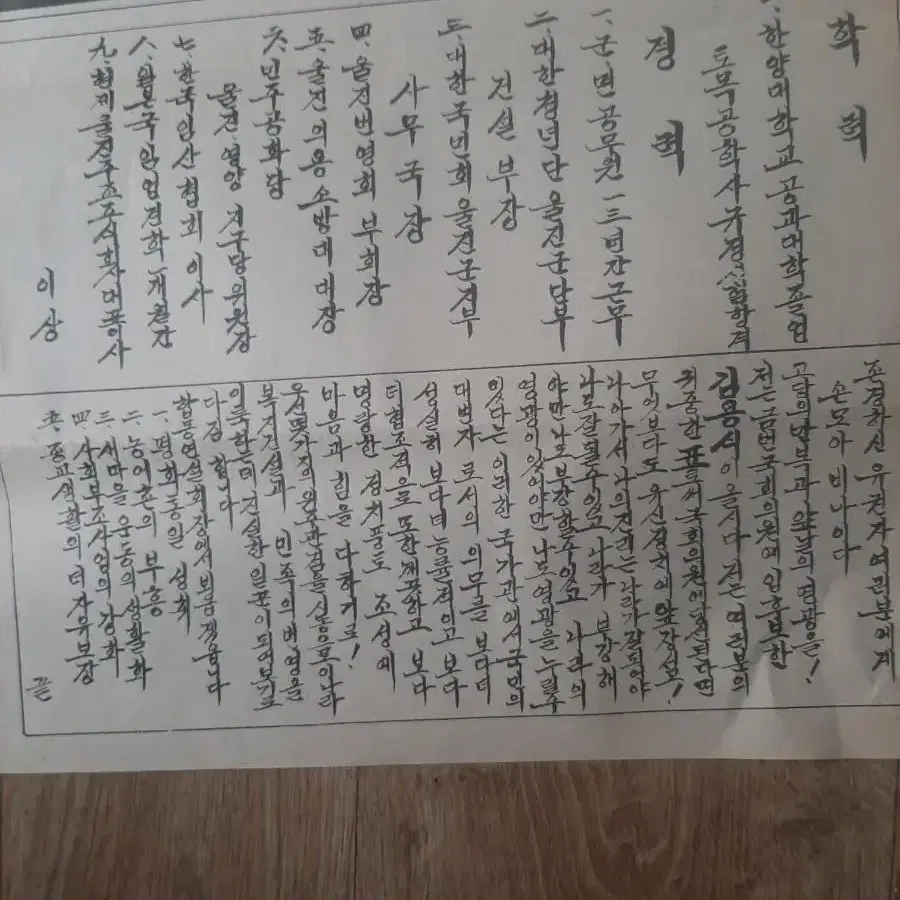 학 력
一. 한양대학교 공과대학 졸업
토목공학사 규정시험합격
경 력
一. 군 면 공무원 一三년간 근무
二. 대한청년단 울진군단부
건설부장
三. 대한국민회 울진군지부
사무국장
四. 울진번영회 부회장
五. 울진 의용소방대 대장
六. 민주공화당
울진·영양 지구당위원장
七. 한국임산협회 이사
八. 일본국 임업견학 개월간
九. 현재 울진주조주식회사 대표이사
이상
조경하신 유권자 여러분에게
손모아 비나이다
고달의 당도과 의 영광을!
저는 국회의원에 입후보한
김용식이 올시다 저는 여러분의
귀중한 표로써 국회의원에 당선되면
무엇보다도 유신정치의 앞장서고!
나아가서 나의 진리는 나라가 잘되어야
나도 잘될수있고 나라가 부강해
야만 나도 부강할수있고 나라의
영광이 있어야만 나도 영광을 누릴수
있다는 이러한 국가관에서 국민의
대변자로서의 의무를 보다더
성실히 보다더 능률적이고 보다
더 협조적으로 또한 최고하고 보다
명랑한 정치풍토 조성에
마음과 힘을 다하기로!
우선 평가의 원과 실을 실응을 위한
복지건설과 민족의 번영을
이룩하는데 건실한 일꾼이 되기로
다짐 합니다
합동연설회장에서 부름겠읍니다
一. 평화통일 성취
二. 농어촌의 부흥
三. 새마을운동의 생활화
四. 사회부조사업의 강화
五. 종교생활의 더 자유보장
끝